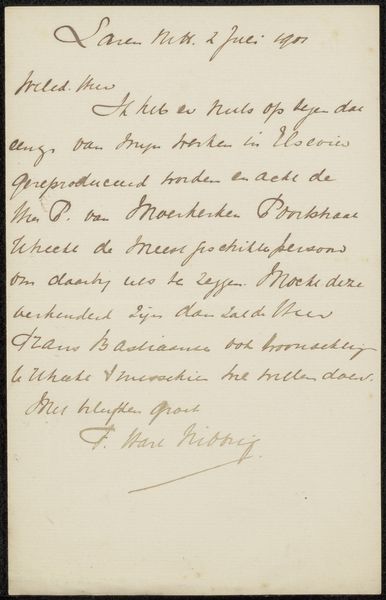 Laren N.H. 2 Juli 1901
Weled. Heer
Ik heb er niets op tegen dat
eenige van mijn werken in Elsevier
gereproduceerd worden en acht de
Heer P. van Moerkerken Poortstraat
Utrecht de meest geschikte persoon
om daarbij iets te zeggen. Mocht deze
verhinderd zijn dan zal de Heer
Frans Bastiaanse ook woonachtig
te Utrecht misschien wel willen doen.
Met beleefden groet
F. Hart Nibbrig